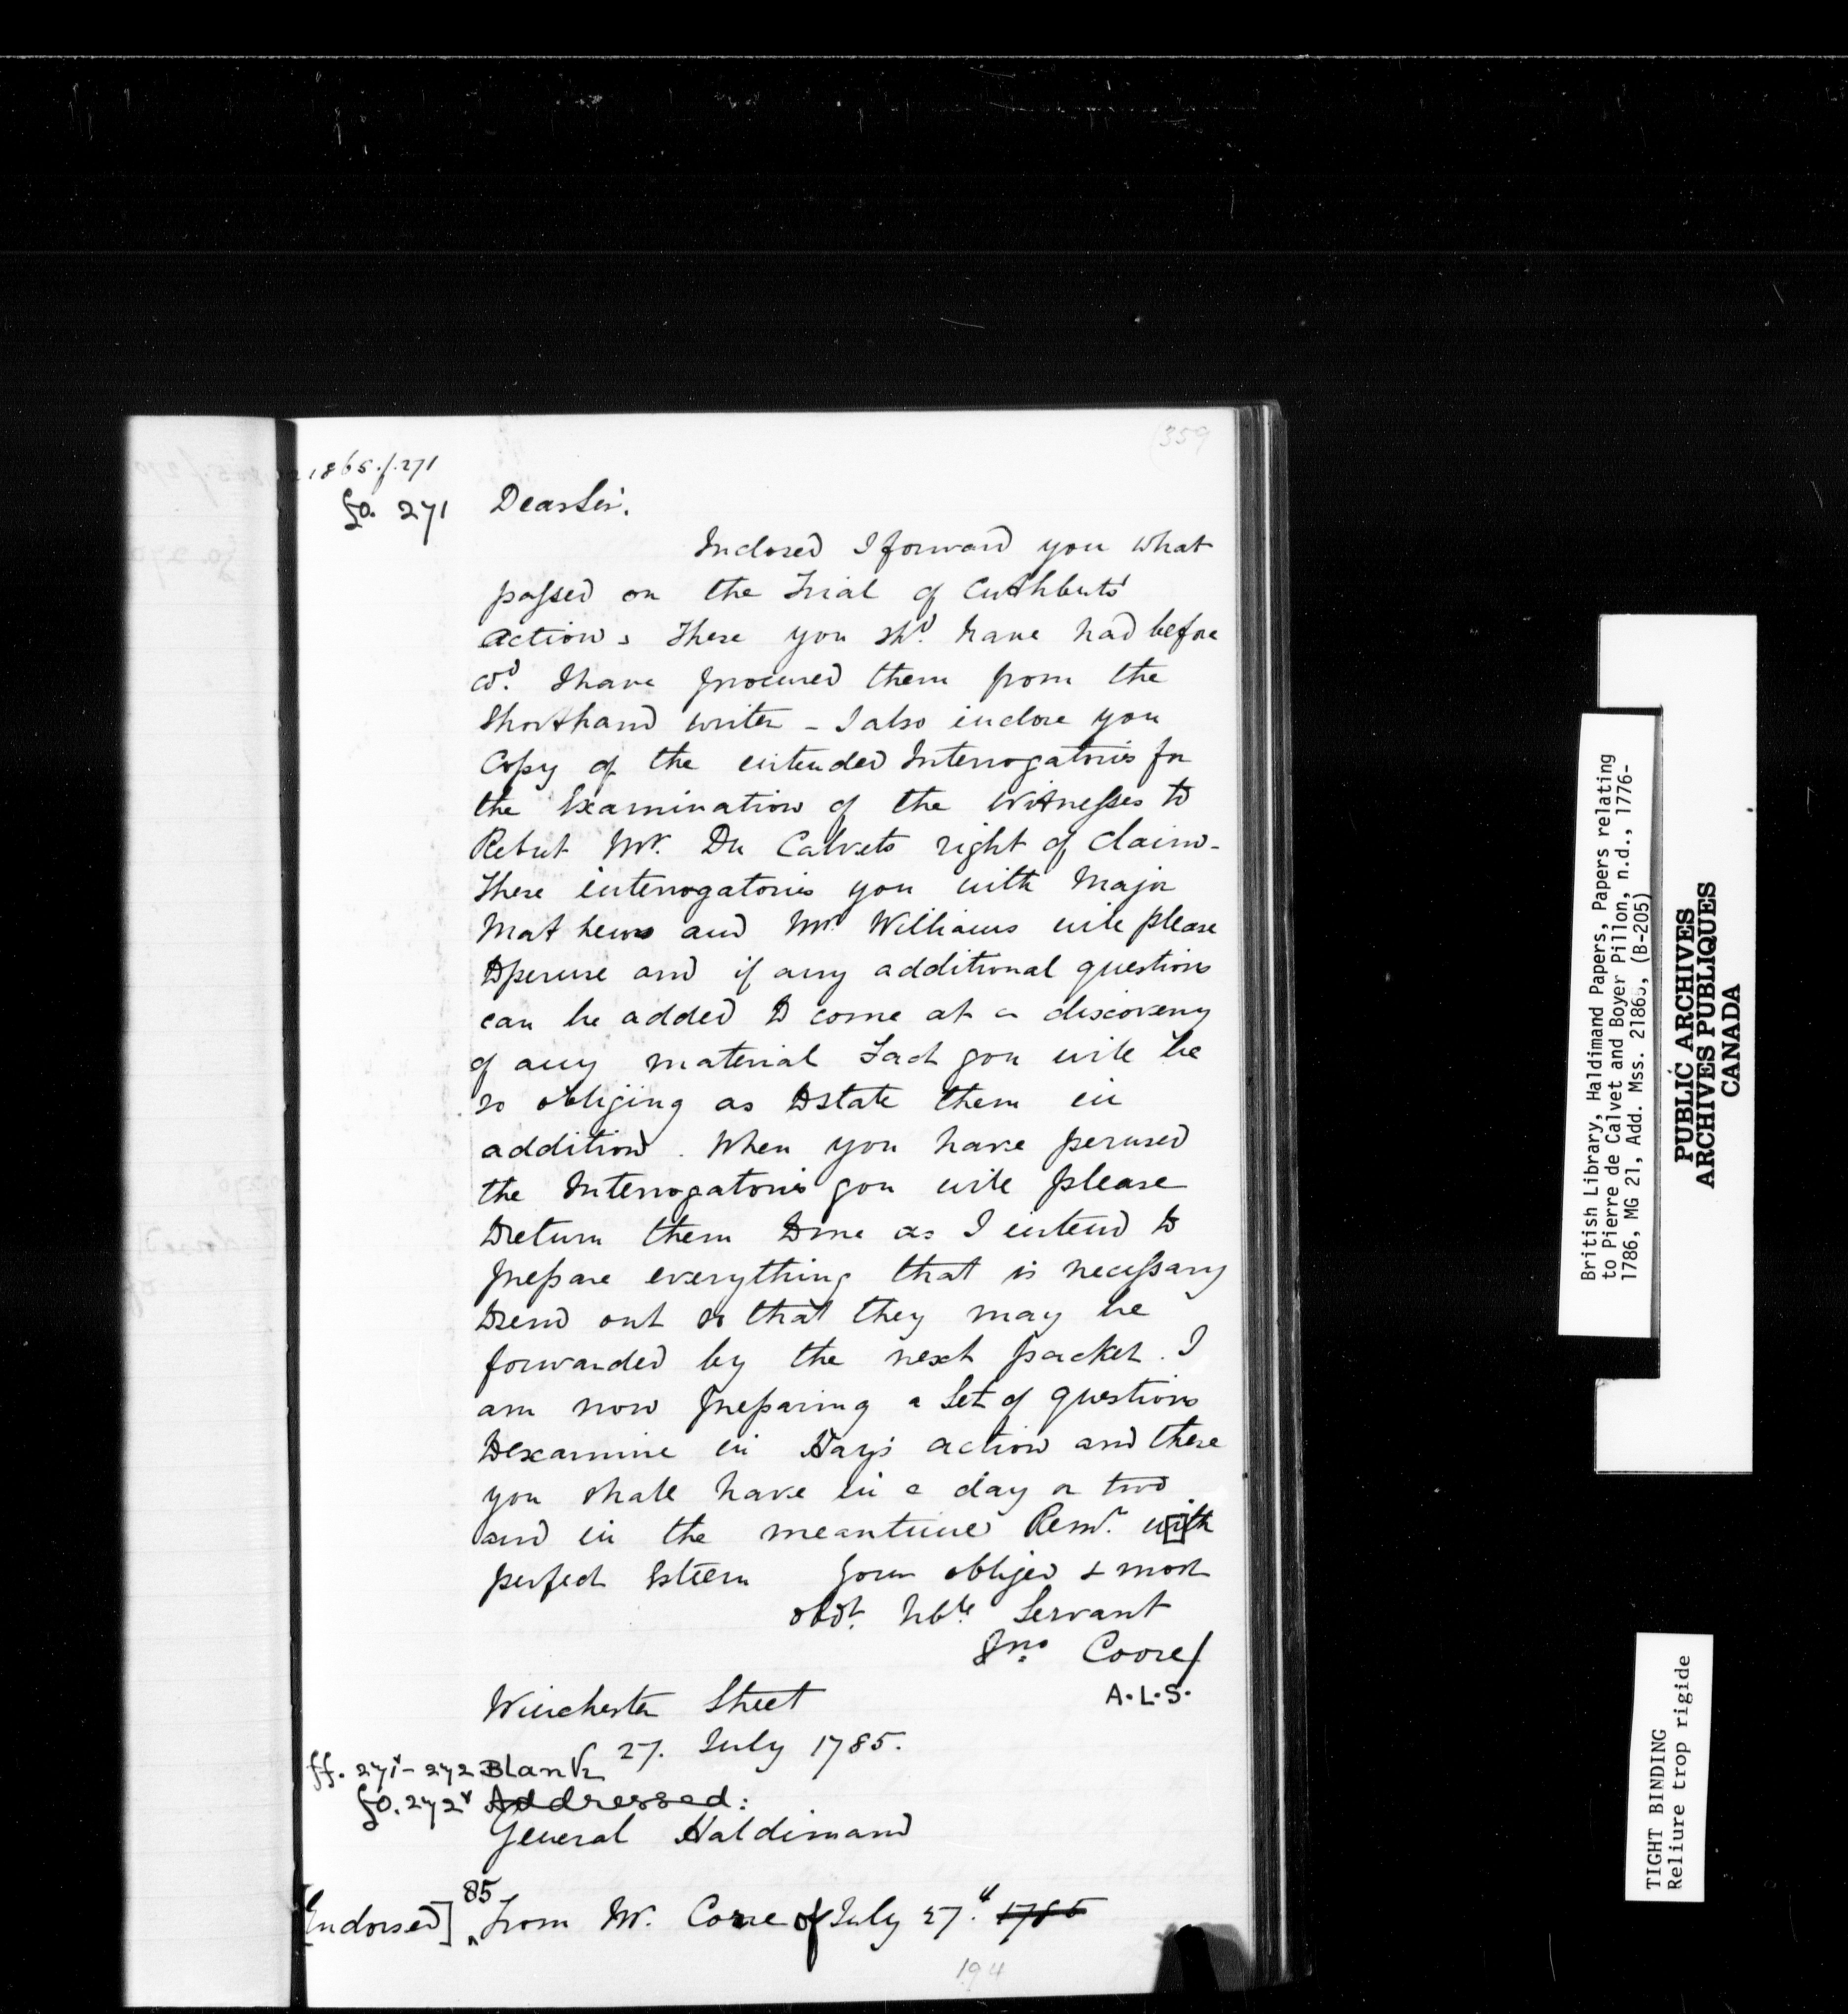 (359
21865.f.271
fo. 271 Dear Sir.
Inclosed I forward you what
passed on the Trial of Cuthberts
Action, These you shd. have had before
cod. I have procured them from the
Shorthand writer - I also inclose you
Copy of the intended Interrogatories for
the Examination of the Witnesses to
Rebut Mr. Du Calvets right of Claim -
These interrogatories you with Major
Mathews and Mr Williams will please
to peruse and if any additional questions
can be added to come at a discovery
of any material Fact you will be
so obliging as to state them in
addition. When you have perused
the Interrogatories you will please
to return them to me as I intend to
prepare everything that is necessary
to send out so that they may be
forwarded by the next packet. I
am now preparing a Set of questions
to examine in Hay's action and these
you shall have in a day or two
and in the meantime Remr. with
perfect Esteem Your obliged & most
obdt. hble Servant
Jno. Coore/
A.L.S.
Winchester Street
27. July 1785.
ff. 271v-272 Blank
fo. 272v Addressed:
General Haldimand
[Endorsed] 85 From Mr. Coore of July 27.th 1785
194
British Library, Haldimand Papers, Papers relating
to Pierre de Calvet and Boyer Pillon, n.d., 1776-
1786, MG 21, Add. Mss. 21865, (B-205)
PUBLIC ARCHIVES
ARCHIVES PUBLIQUES
CANADA
TIGHT BINDING
Reliure trop rigide